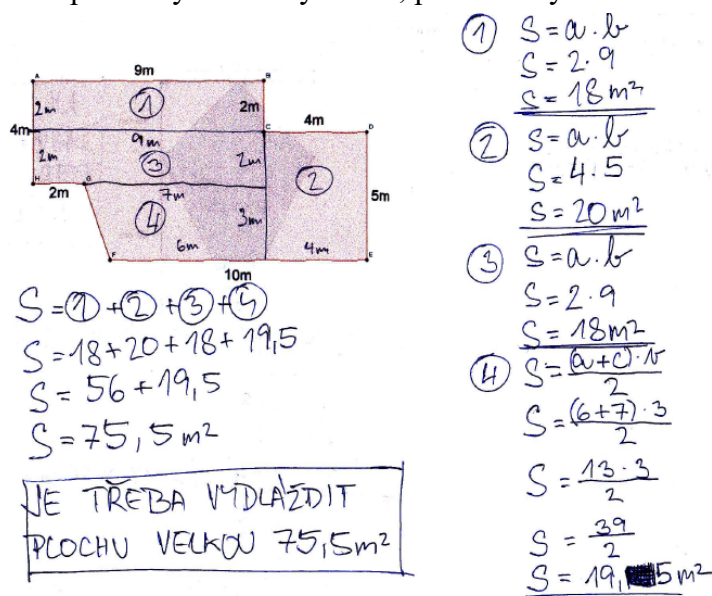 9m
A
B
2m
1
2m
4m
4m
9m
C
D
2m
3
2m
2
H
2m
G
7m
5m
4
3m
6m
4m
F
E
10m
S=1+2+3+4
S=18+20+18+19,5
S= 56+19,5
S=75,5 m²
JE TŘEBA VYDLÁŽDIT
PLOCHU VELKOU 75,5m²
1 S=a.b
S=2.9
S=18m²
2 S=a.b
S=4.5
S=20m²
3 S=a.b
S=2.9
S=18m²
4 S=(a+c).v/2
S=(6+7).3/2
S=13.3/2
S=39/2
S=19,5m²